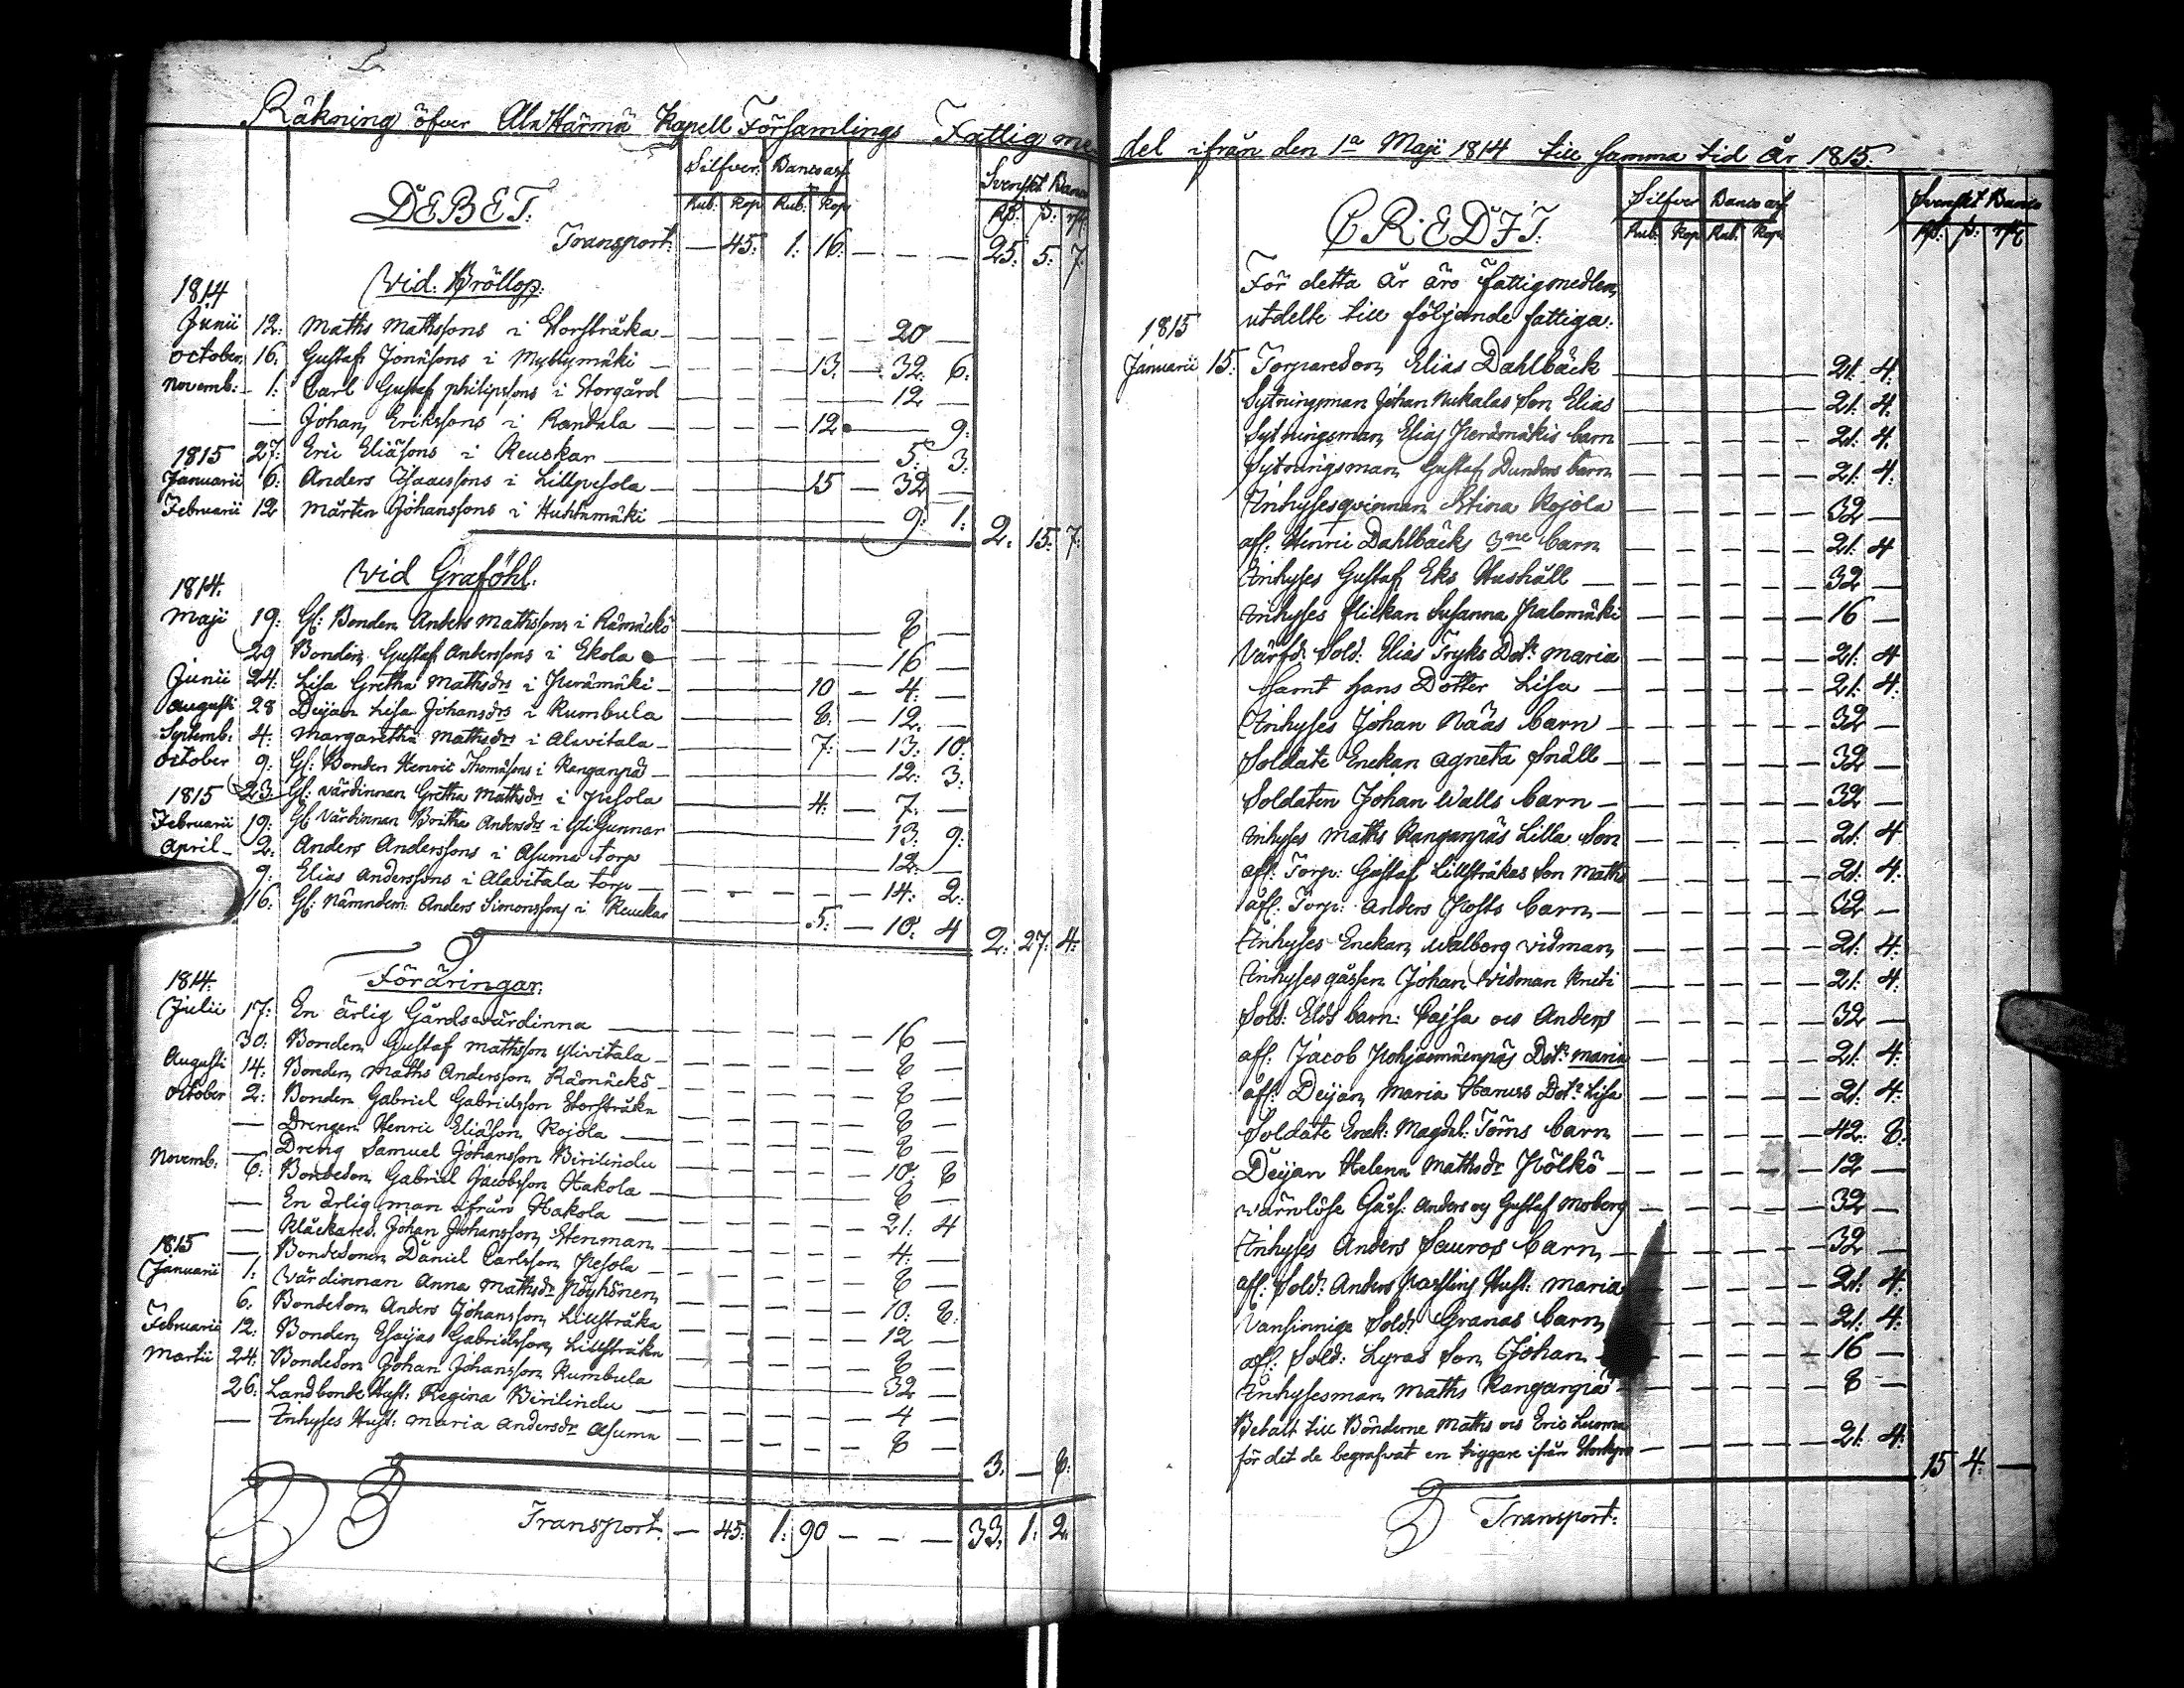 Räkning öfver Ala Härmä Kapell Församlings Fattig me-
DEBET.
Silfver. Banco ass.
Svenskt Banco
Rub: Kop Rub: Kop
Rß. ß. rst.
Transport. — 45: 1: 16. — — — 25: 5: 7.
Vid Bröllop.
1814
Junii 12: Maths Mathssons i Storstråka — 20 —
October 16. Gustaf Jonassons i Myllymäki — 13. — 32. 6.
Novemb: 1. Carl Gustaf Philipssons i Storgård — 12 —
— Johan Erikssons i Randala — 12. — 9.
27: Eric Eliäsons i Reuckar — 5. 3.
1815
Januarii 6. Anders Isaacssons i Lillpesola — 15 — 32 —
Februarii 12 Mårten Johanssons i Huhtamäki — 9. 1: 2. 15. 7.
Vid Graföhl.
1814.
Maji 19: Gl: Bonden Anders Mathssons i Rämäckö — 8 —
29 Bonden Gustaf Anderssons i Ekola — 16 —
Junii 24: Lisa Gretha Mathsdrs i Perämäki — 10 — 4. —
Augusti 28 Deijan Lisa Johansdrs i Kumbula — 8. — 12. —
Septemb: 4: Margaretha Mathsdrs i Alavitala — 7: — 13: 10.
October 9: Gl: Bonden Henric Thomäsons i Kanganpää — 12: 3:
23: Gl: Värdinnan Gretha Mathsdrs i Pesola — 4: — 7: —
1815
Februarii 19: Gl: Värdinnan Britha Andersdrs i Yli Gunnar — 13. 9:
April 2. Anders Anderssons i Asuma torp — 12. —
9: Elias Anderssons i Alavitala torp — 14: 2:
16: Gl: Nämndem: Anders Simonssons i Reuckar — 5: — 10. 4 2: 27: 4:
Föräringar.
1814.
Julii 17: En ärlig Gårdswärdinna — 16 —
30: Bonden Gustaf Mathsson Ylivitala — 8 —
Augusti 14: Bonden Maths Andersson Rämäckö — 8 —
October 2: Bonden Gabriel Gabrielsson Storstråka — 8 —
— Drengen Henric Eliäson Kojola — 8 —
— Dreng Samuel Johansson Birilindu — 10: 8
Novemb: 6: Bondeson Gabriel Jacobsson Hakola — 8 —
— En ärlig man ifrån Hakola — 21: 4
— Klåckaren Johan Johansson Stenman — 4: —
— Bondesonen Daniel Carlsson Pesola — 8 —
1815
Januarii 1: Värdinnan Anna Mathsdr Pöyhönen — 10: 8:
6: Bondeson Anders Johansson Lillstråka — 12 —
Februarii 12: Bonden Esaijas Gabrielsson Lillstråka — 8 —
Martii 24: Bondeson Johan Johansson Kumbula — 32 —
26: Landbonde Hust: Regina Birilindu — 4 —
— Inhyses Hust: Maria Andersdr Asuma — 8 —
3: — 8:
Transport. — 45: 1: 90 — — — 33: 1: 2.
del ifrån den 1a Maji 1814 till samma tid År 1815.
CREDIT.
Silfver Banco ass
Svenskt Banco
Rub: Kop Rub: Kop
Rß: ß: rst
För detta år äro fattigmedlen
1815 utdelte till följande fattiga.
Januarii 15: Torpareson Elias Dahlbäck — 21: 4:
Sytningsman Johan Nukalas Son Elias — 21: 4:
Sytningsman Elias Perämäkis barn — 21: 4:
Sytningsman Gustaf Dunders barn — 21: 4:
Inhysesqvinnan Stina Kojola — 32 —
afl: Henric Dahlbäcks 3ne barn — 21: 4
Inhyses Gustaf Eks Hushåll — 32 —
Inhyses flickan Susanna Palomäki — 16 —
Värfd: Sold: Elias Tryks Dotr Maria — 21: 4
samt hans Dotter Lisa — 21: 4:
Inhyses Johan Nääs barn — 32 —
Soldate Enckan Agneta Snäll — 32 —
Soldaten Johan Walls barn — 32 —
Inhyses Maths Kanganpäs Lilla Son — 21: 4
afl: Torp: Gustaf Lillstråkas Son Maths — 21: 4:
afl: Torp: Anders Posts barn — 32 —
Inhyses Enckan Walborg Vidman — 21: 4:
Inhyses gåssen Johan Vidman Kniti — 21: 4:
Sold: Elds barn: Cajsa och Anders — 32 —
afl: Jacob Pohjaomäenpäs Dotr Maria — 21: 4:
afl: Deijan Maria Haruss Dotr Lisa — 21: 4:
Soldate Enck: Magdal: Törns barn — 42: 8:
Deijan Helena Mathsdr Pölkö — 12 —
Värnlöse Gåss: Anders och Gustaf Moberg — 32 —
Inhyses Anders Sauros barn — 32 —
afl: Sold: Anders Hust: Maria — 21: 4:
Vansinnige Sold: Granas barn — 21: 4:
afl: Sold: Lyras Son Johan — 16 —
Inhysesman Maths Kanganpää — 8 —
Betalt till Bönderne Maths och Eric Luoma
för det de begrafvat en tiggare ifrån Storkyro — 21: 4:
15 4: —
Transport: